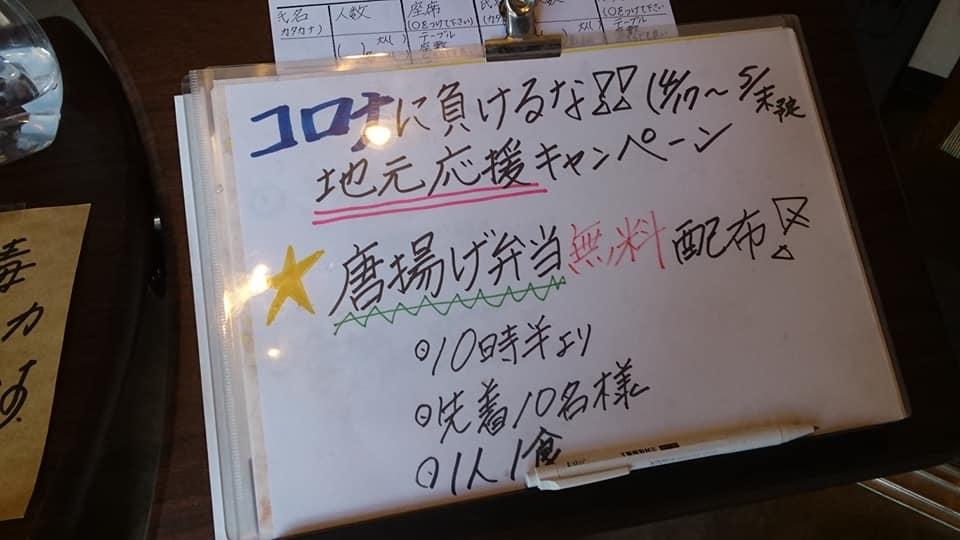 氏名 人数 座席
(カタカナ) (○をつけて下さい)
( )大人( ) テーブル
座敷
コロナに負けるな!! (4/17〜5/末予定
地元応援キャンペーン
★唐揚げ弁当無料配布!
⊙10時半より
⊙先着10名様
⊙1人1食